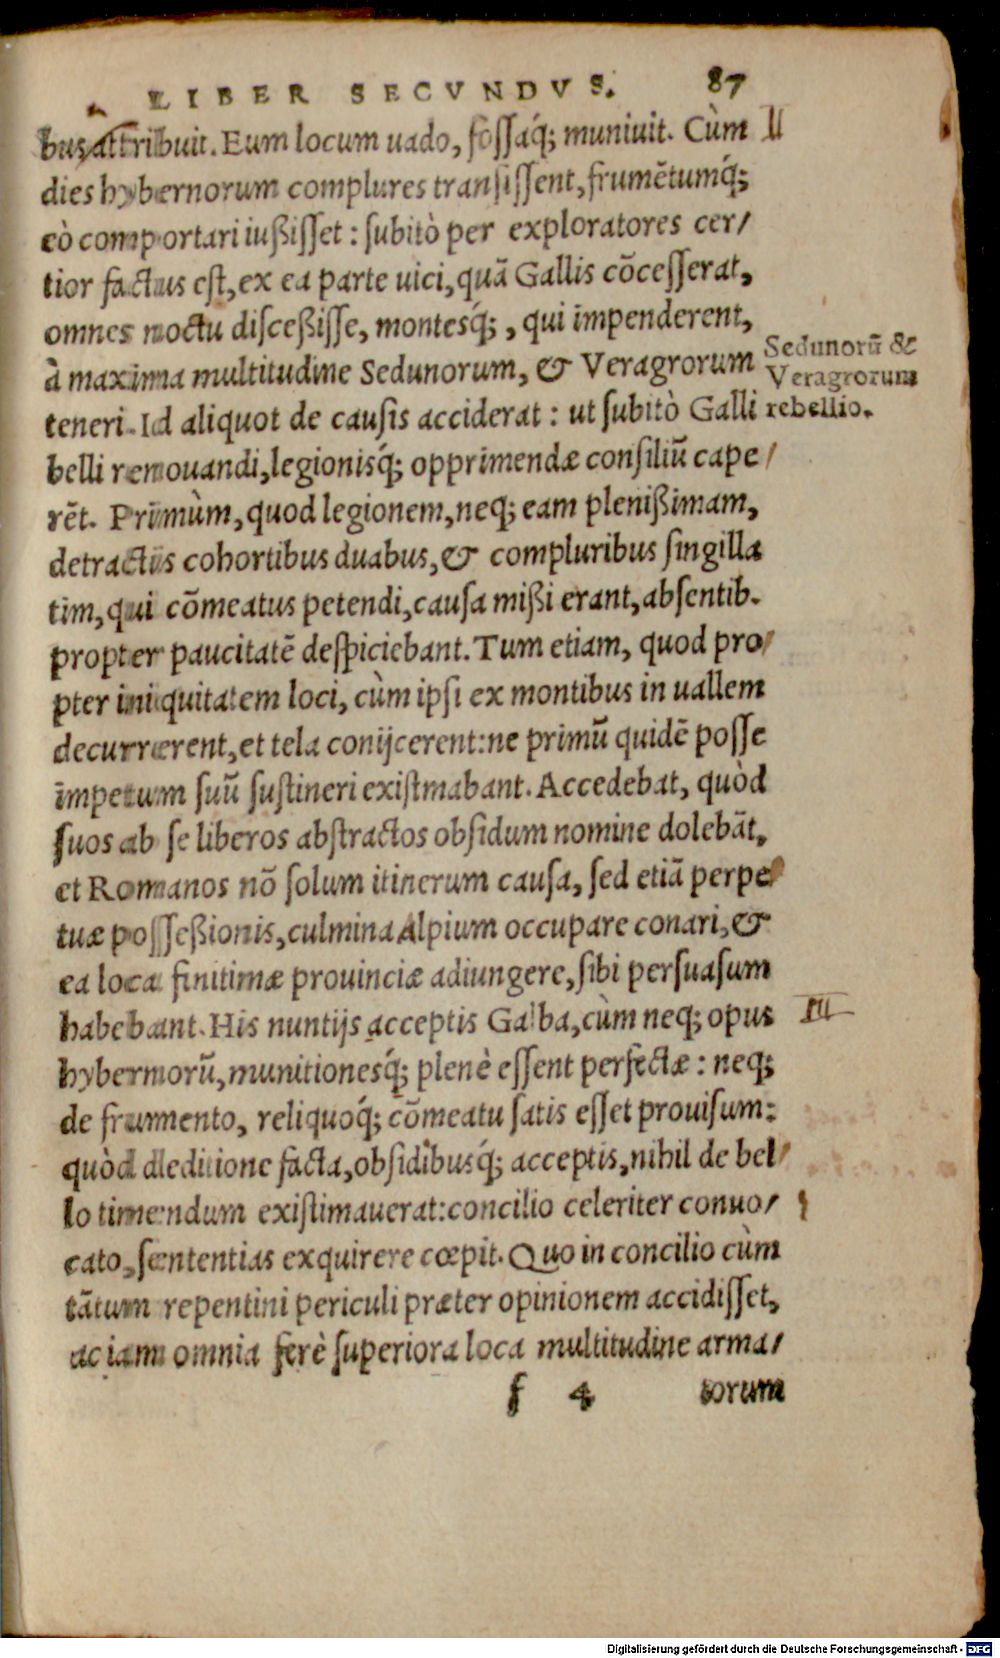 LIBER SECVNDVS. 87
bus attribuit. Eum locum uado, fossaq́; muniuit. Cùm II
dies hybernorum complures transissent, frumẽtumq́;
eò comportari iußisset: subitò per exploratores cer/
tior factus est, ex ea parte uici, quã Gallis cõcesserat,
omnes noctu disceßisse, montesq́;, qui impenderent,
à maxima multitudine Sedunorum, & Veragrorum
Sedunorũ &
Veragrorum
rebellio.
teneri. Id aliquot de causis acciderat: ut subitò Galli
belli renouandi, legionisq́; opprimendæ consiliũ cape/
rẽt. Primùm, quod legionem, neq; eam plenißimam,
detractis cohortibus duabus, & compluribus singilla
tim, qui cõmeatus petendi, causa mißi erant, absentib.
propter paucitatẽ despiciebant. Tum etiam, quod pro/
pter iniquitatem loci, cùm ipsi ex montibus in uallem
decurrerent, et tela conijcerent: ne primũ quidẽ posse
impetum suũ sustineri existmabant. Accedebat, quòd
suos ab se liberos abstractos obsidum nomine dolebãt,
et Romanos nõ solum itinerum causa, sed etiã perpe
tuæ possessionis, culmina Alpium occupare conari, &
ea loca finitimæ prouinciæ adiungere, sibi persuasum
habebant. His nuntijs acceptis Galba, cùm neq; opus III
hybernorũ, munitionesq́; plenè essent perfectæ: neq;
de frumento, reliquoq́; cõmeatu satis esset prouisum:
quòd deditione facta, obsidibusq́; acceptis, nihil de bel/
lo timendum existimauerat: concilio celeriter conuo/
cato, sententias exquirere cœpit. Quo in concilio cùm
tãtum repentini periculi præter opinionem accidisset,
ac iam omnia ferè superiora loca multitudine arma/
f 4 torum
Digitalisierung gefördert durch die Deutsche Forschungsgemeinschaft - DFG